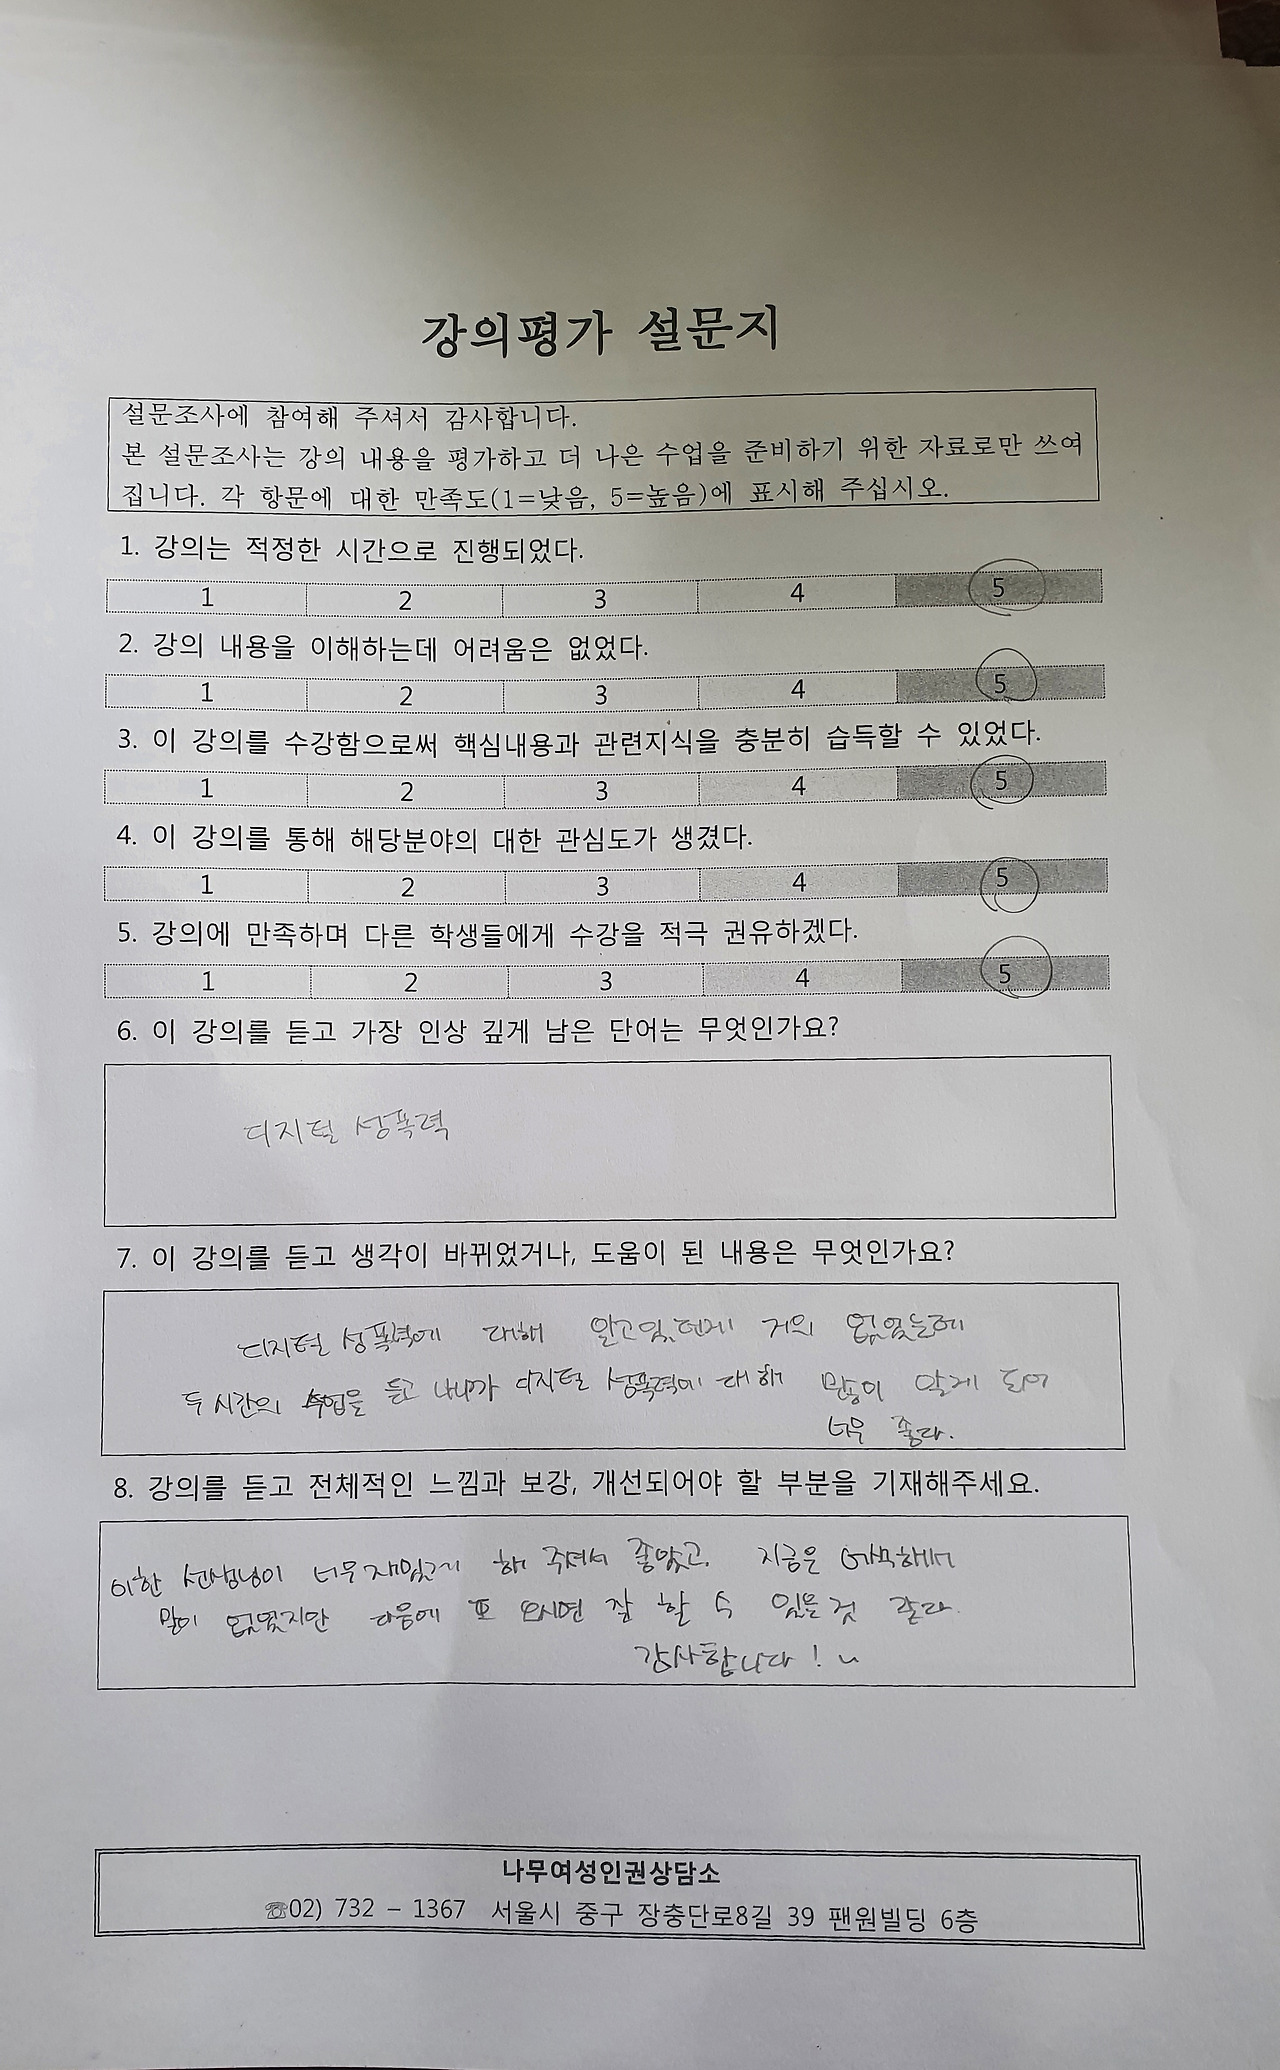 강의평가 설문지
설문조사에 참여해 주셔서 감사합니다.
본 설문조사는 강의 내용을 평가하고 더 나은 수업을 준비하기 위한 자료로만 쓰여
집니다. 각 항문에 대한 만족도(1=낮음, 5=높음)에 표시해 주십시오.
1. 강의는 적정한 시간으로 진행되었다.
1 2 3 4 5
2. 강의 내용을 이해하는데 어려움은 없었다.
1 2 3 4 5
3. 이 강의를 수강함으로써 핵심내용과 관련지식을 충분히 습득할 수 있었다.
1 2 3 4 5
4. 이 강의를 통해 해당분야의 대한 관심도가 생겼다.
1 2 3 4 5
5. 강의에 만족하며 다른 학생들에게 수강을 적극 권유하겠다.
1 2 3 4 5
6. 이 강의를 듣고 가장 인상 깊게 남은 단어는 무엇인가요?
디지털 성폭력
7. 이 강의를 듣고 생각이 바뀌었거나, 도움이 된 내용은 무엇인가요?
디지털 성폭력에 대해 알고있던게 거의 없었는데
두 시간의 수업을 듣고 디지털 성폭력에 대해 많이 알게 되어
너무 좋다.
8. 강의를 듣고 전체적인 느낌과 보강, 개선되어야 할 부분을 기재해주세요.
이한 선생님이 너무 재밌게 해 주셔서 좋았고. 지금은 어색해서
말이 없었지만 다음에 또 오시면 잘 할 수 있을 것 같다.
감사합니다!
나무여성인권상담소
☏02) 732 – 1367 서울시 중구 장충단로8길 39 팬원빌딩 6층